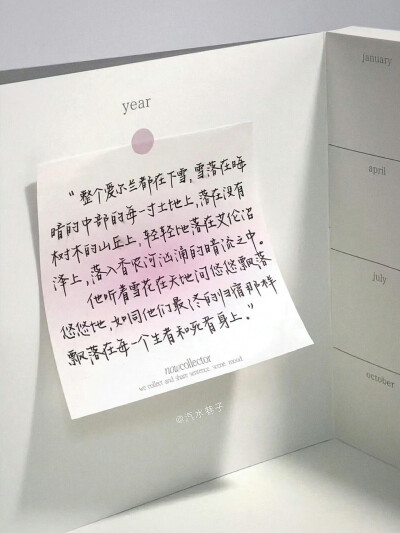 year
january
april
july
october
“整个爱尔兰都在下雪，雪落在晦
暗的中部的每一寸土地上，落在没有
树木的山丘上，轻轻地落在艾伦沼
泽上，落入香农河汹涌的暗流之中。
他听着雪花在天地间悠悠飘落
悠悠地，如同他们最终的归宿那样
飘落在每一个生者和死者身上。”
nowcollector
we collect and share sentence, scene, mood
@汽水巷子